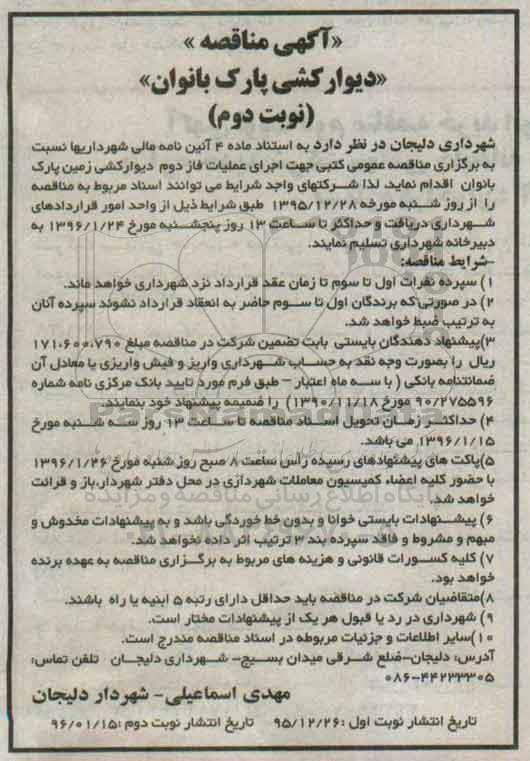 «آگهی مناقصه »
«دیوارکشی پارک بانوان»
(نوبت دوم)
شهرداری دلیجان در نظر دارد به استناد ماده ۴ آئین نامه مالی شهرداریها نسبت
به برگزاری مناقصه عمومی کتبی جهت اجرای عملیات فاز دوم دیوارکشی زمین پارک
بانوان اقدام نماید. لذا شرکتهای واجد شرایط می توانند اسناد مربوط به مناقصه
را از روز شنبه مورخه ۱۳۹۵/۱۲/۲۸ طبق شرایط ذیل از واحد امور قراردادهای
شهرداری دریافت و حداکثر تا ساعت ۱۳ روز پنجشنبه مورخ ۱۳۹۶/۱/۲۴ به
دبیرخانه شهرداری تسلیم نمایند.
-شرایط مناقصه:
۱) سپرده نفرات اول تا سوم تا زمان عقد قرارداد نزد شهرداری خواهد ماند.
۲) در صورتی که برندگان اول تا سوم حاضر به انعقاد قرارداد نشوند سپرده آنان
به ترتیب ضبط خواهد شد.
۳)پیشنهاد دهندگان بایستی بابت تضمین شرکت در مناقصه مبلغ ۱۷۱،۶۰۰،۷۹۰
ریال را بصورت وجه نقد به حساب شهرداری واریز و فیش واریزی یا معادل آن
ضمانتنامه بانکی ( با سه ماه اعتبار – طبق فرم مورد تایید بانک مرکزی نامه شماره
۹۰/۲۷۵۵۹۶ مورخ ۱۳۹۰/۱۱/۱۸) را ضمیمه پیشنهاد خود بنمایند.
۴) حداکثر زمان تحویل اسناد مناقصه تا ساعت ۱۳ روز سه شنبه مورخ
۱۳۹۶/۱/۱۵ می باشد.
۵)پاکت های پیشنهادهای رسیده راس ساعت ۸ صبح روز شنبه مورخ ۱۳۹۶/۱/۲۶
با حضور کلیه اعضاء کمیسیون معاملات شهرداری در محل دفتر شهردار،باز و قرائت
خواهد شد.
۶) پیشنهادات بایستی خوانا و بدون خط خوردگی باشد و به پیشنهادات مخدوش و
مبهم و مشروط و فاقد سپرده بند ۳ ترتیب اثر داده نخواهد شد.
۷) کلیه کسورات قانونی و هزینه های مربوط به برگزاری مناقصه به عهده برنده
خواهد بود.
۸)متقاضیان شرکت در مناقصه باید حداقل دارای رتبه ۵ ابنیه یا راه باشند.
۹) شهرداری در رد یا قبول هر یک از پیشنهادات مختار است.
۱۰)سایر اطلاعات و جزئیات مربوطه در اسناد مناقصه مندرج است.
آدرس: دلیجان-ضلع شرقی میدان بسیج- شهرداری دلیجان تلفن تماس:
۰۸۶-۴۴۲۳۳۳۰۵
مهدی اسماعیلی- شهردار دلیجان
تاریخ انتشار نوبت اول :۹۵/۱۲/۲۶ تاریخ انتشار نوبت دوم :۹۶/۰۱/۱۵